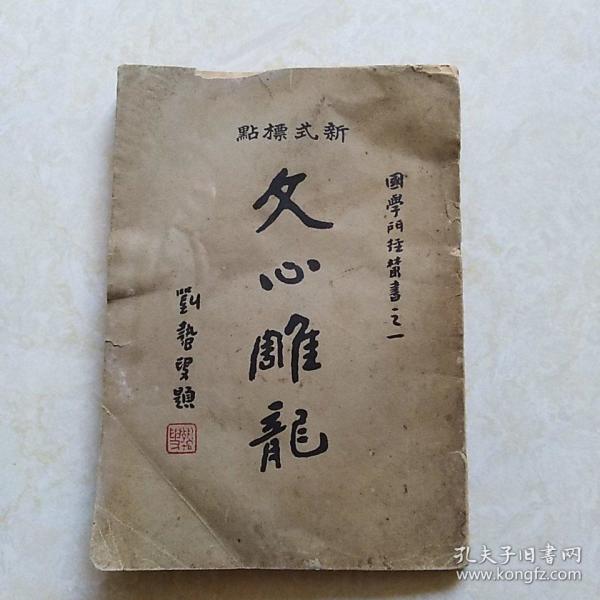 新式標點
國學門徑叢書之一
文心雕龍
劉蟄叟題
孔夫子旧书网
www.kongfz.com